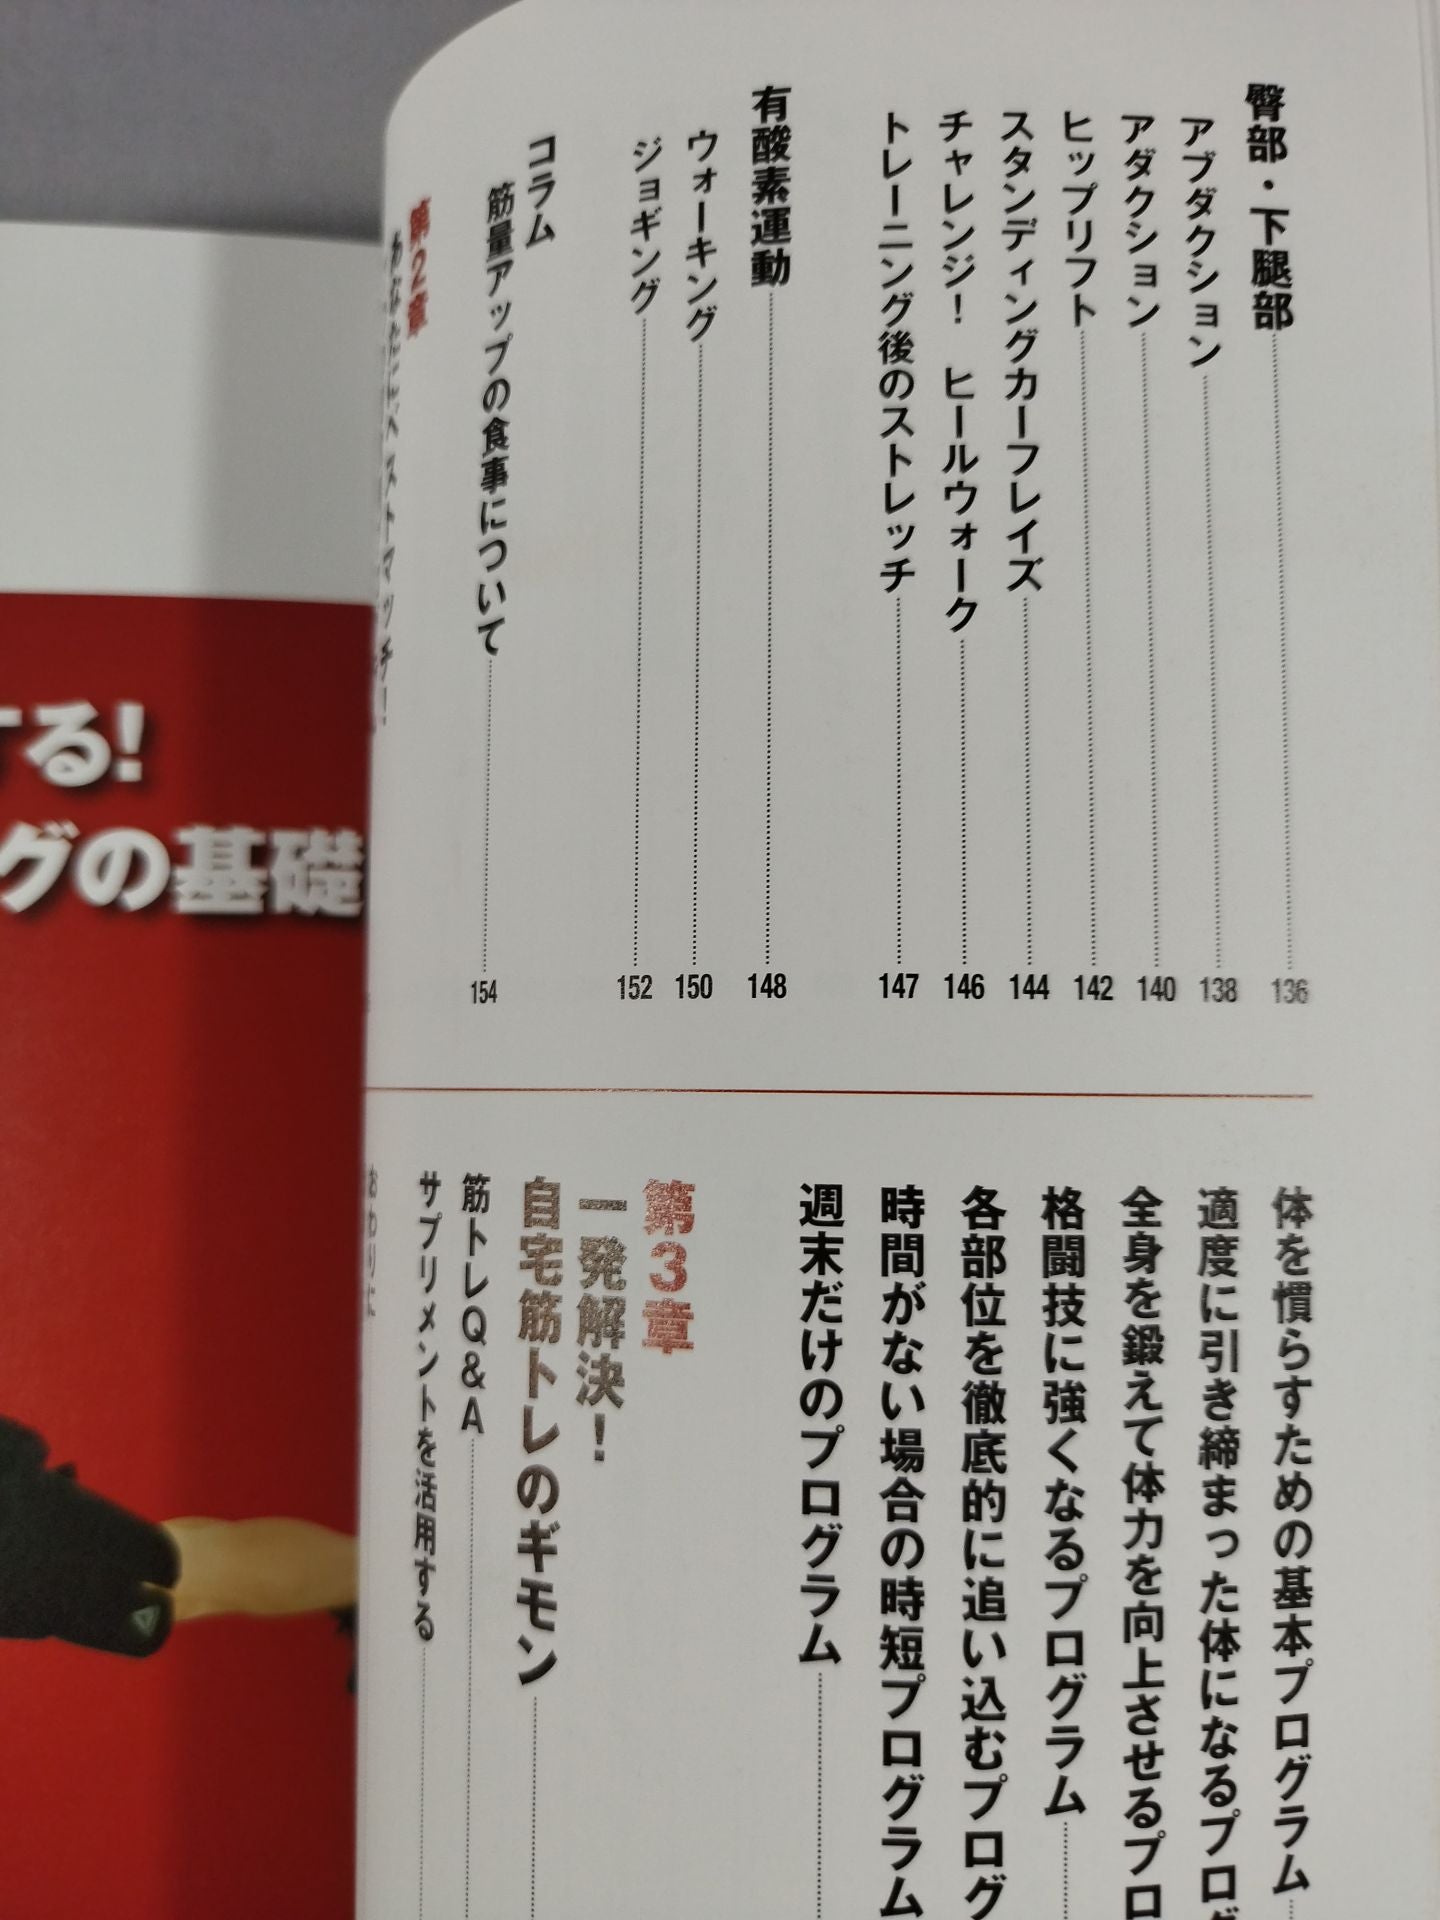 臀部・下腿部 136
アブダクション 138
アダクション 140
ヒップリフト 142
スタンディングカーフレイズ 144
チャレンジ！ ヒールウォーク 146
トレーニング後のストレッチ 147
有酸素運動 148
ウォーキング 150
ジョギング 152
コラム
筋量アップの食事について 154
第2章
あなたにベストマッチ！
体を慣らすための基本プログラム
適度に引き締まった体になるプログ
全身を鍛えて体力を向上させるプロ
格闘技に強くなるプログラム
各部位を徹底的に追い込むプログ
時間がない場合の時短プログラム
週末だけのプログラム
第3章
一発解決！
自宅筋トレのギモン
筋トレQ&A
サプリメントを活用する
おわりに
する!
グの基礎